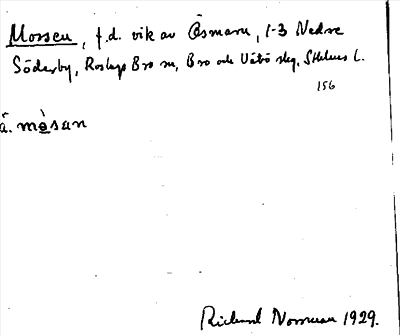 Mossen, f.d. vik av Åsmaren, 1-3 Nedre
Söderby, Roslags Bro sn, Bro och Vätö skg, Sthlms l.
156
å. mòsan
Rickard Norrman 1929.